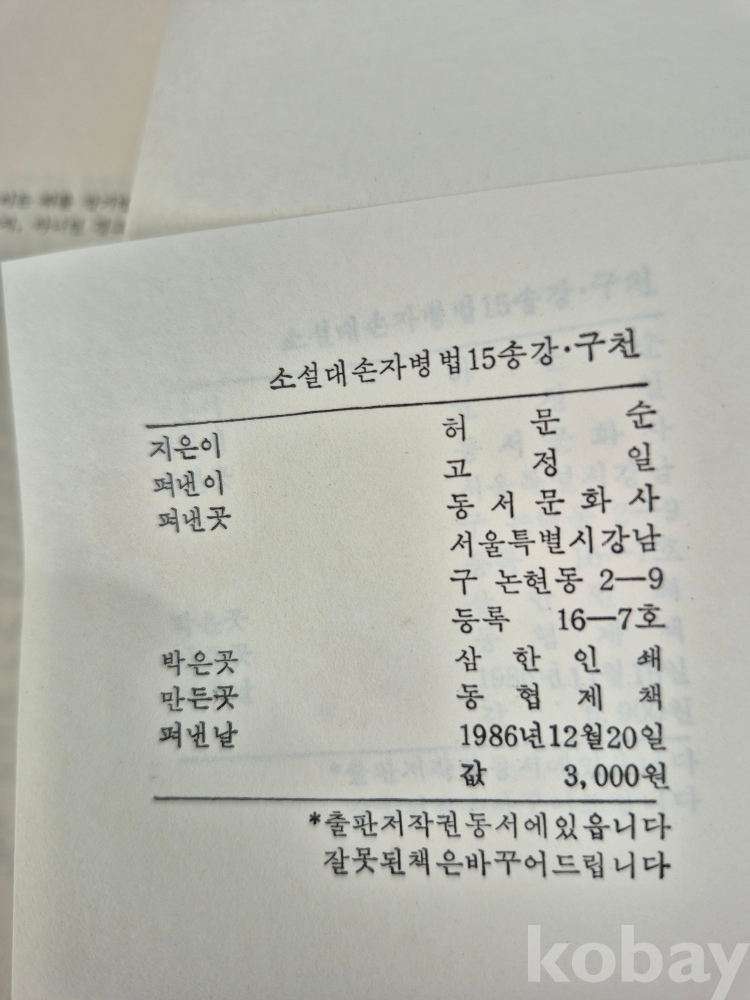 소설대손자병법15송강·구천
지은이 허 문 순
펴낸이 고 정 일
펴낸곳 동 서 문 화 사
서울특별시강남
구 논현동 2—9
등록 16—7호
박은곳 삼 한 인 쇄
만든곳 동 협 제 책
펴낸날 1986년12월20일
값 3,000원
*출판저작권동서에있읍니다
잘못된책은바꾸어드립니다
kobay